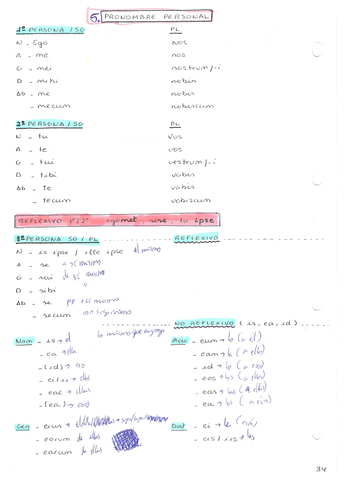 5. PRONOMBRE PERSONAL
1ª PERSONA / SG PL
N - Ego nos
A - me nos
G - mei nostrum/-i
D - mihi nobis
Ab - me nobis
- mecum nobiscum
2ª PERSONA / SG PL
N - tu vos
A - te vos
G - tui vestrum/-i
D - tibi vobis
Ab - te vobis
- tecum vobiscum
REFLEXIVO 1ª/2ª egomet tu ipse
3ª PERSONA SG / PL REFLEXIVO
N - is ipse / ille ipse el mismo
A - se a sí mismo
G - sui de sí mismo
D - sibi "
Ab - se
- secum
NO REFLEXIVO (is, ea, id)
Nom - is → él
- ea → ella
- (id) →
- ei / ii → ellos
- eae → ellas
- (ea) → eso
Gen - eius →
- eorum de ellos
- earum de ellas
Acu - eum → lo (a él)
- eam → la (a ella)
- id → lo (a eso)
- eos → los (a ellos)
- eas → las (a ellas)
- ea →
Dat - ei → le
- eis / iis → les
34